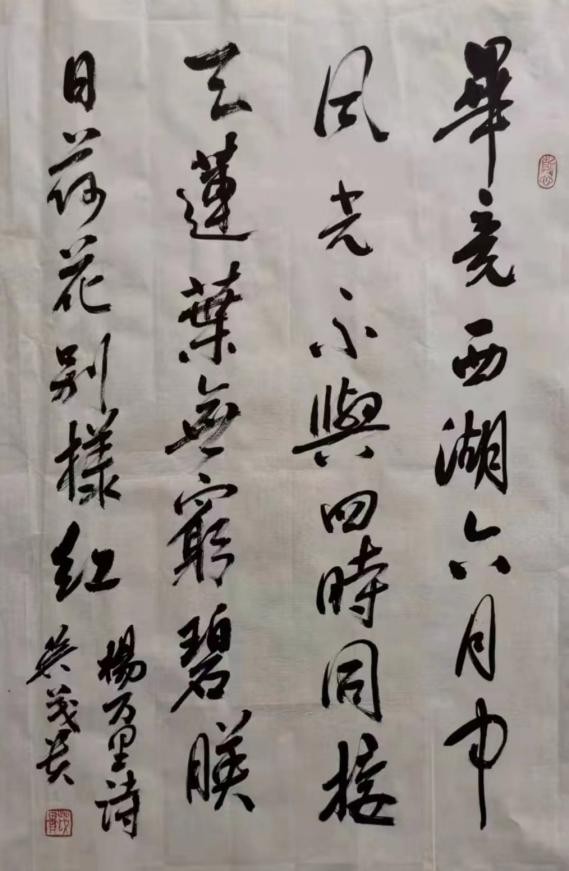 畢竟西湖六月中
風光不與四時同接
天蓮葉無窮碧映
日荷花別樣紅
楊万里詩
吳茂長